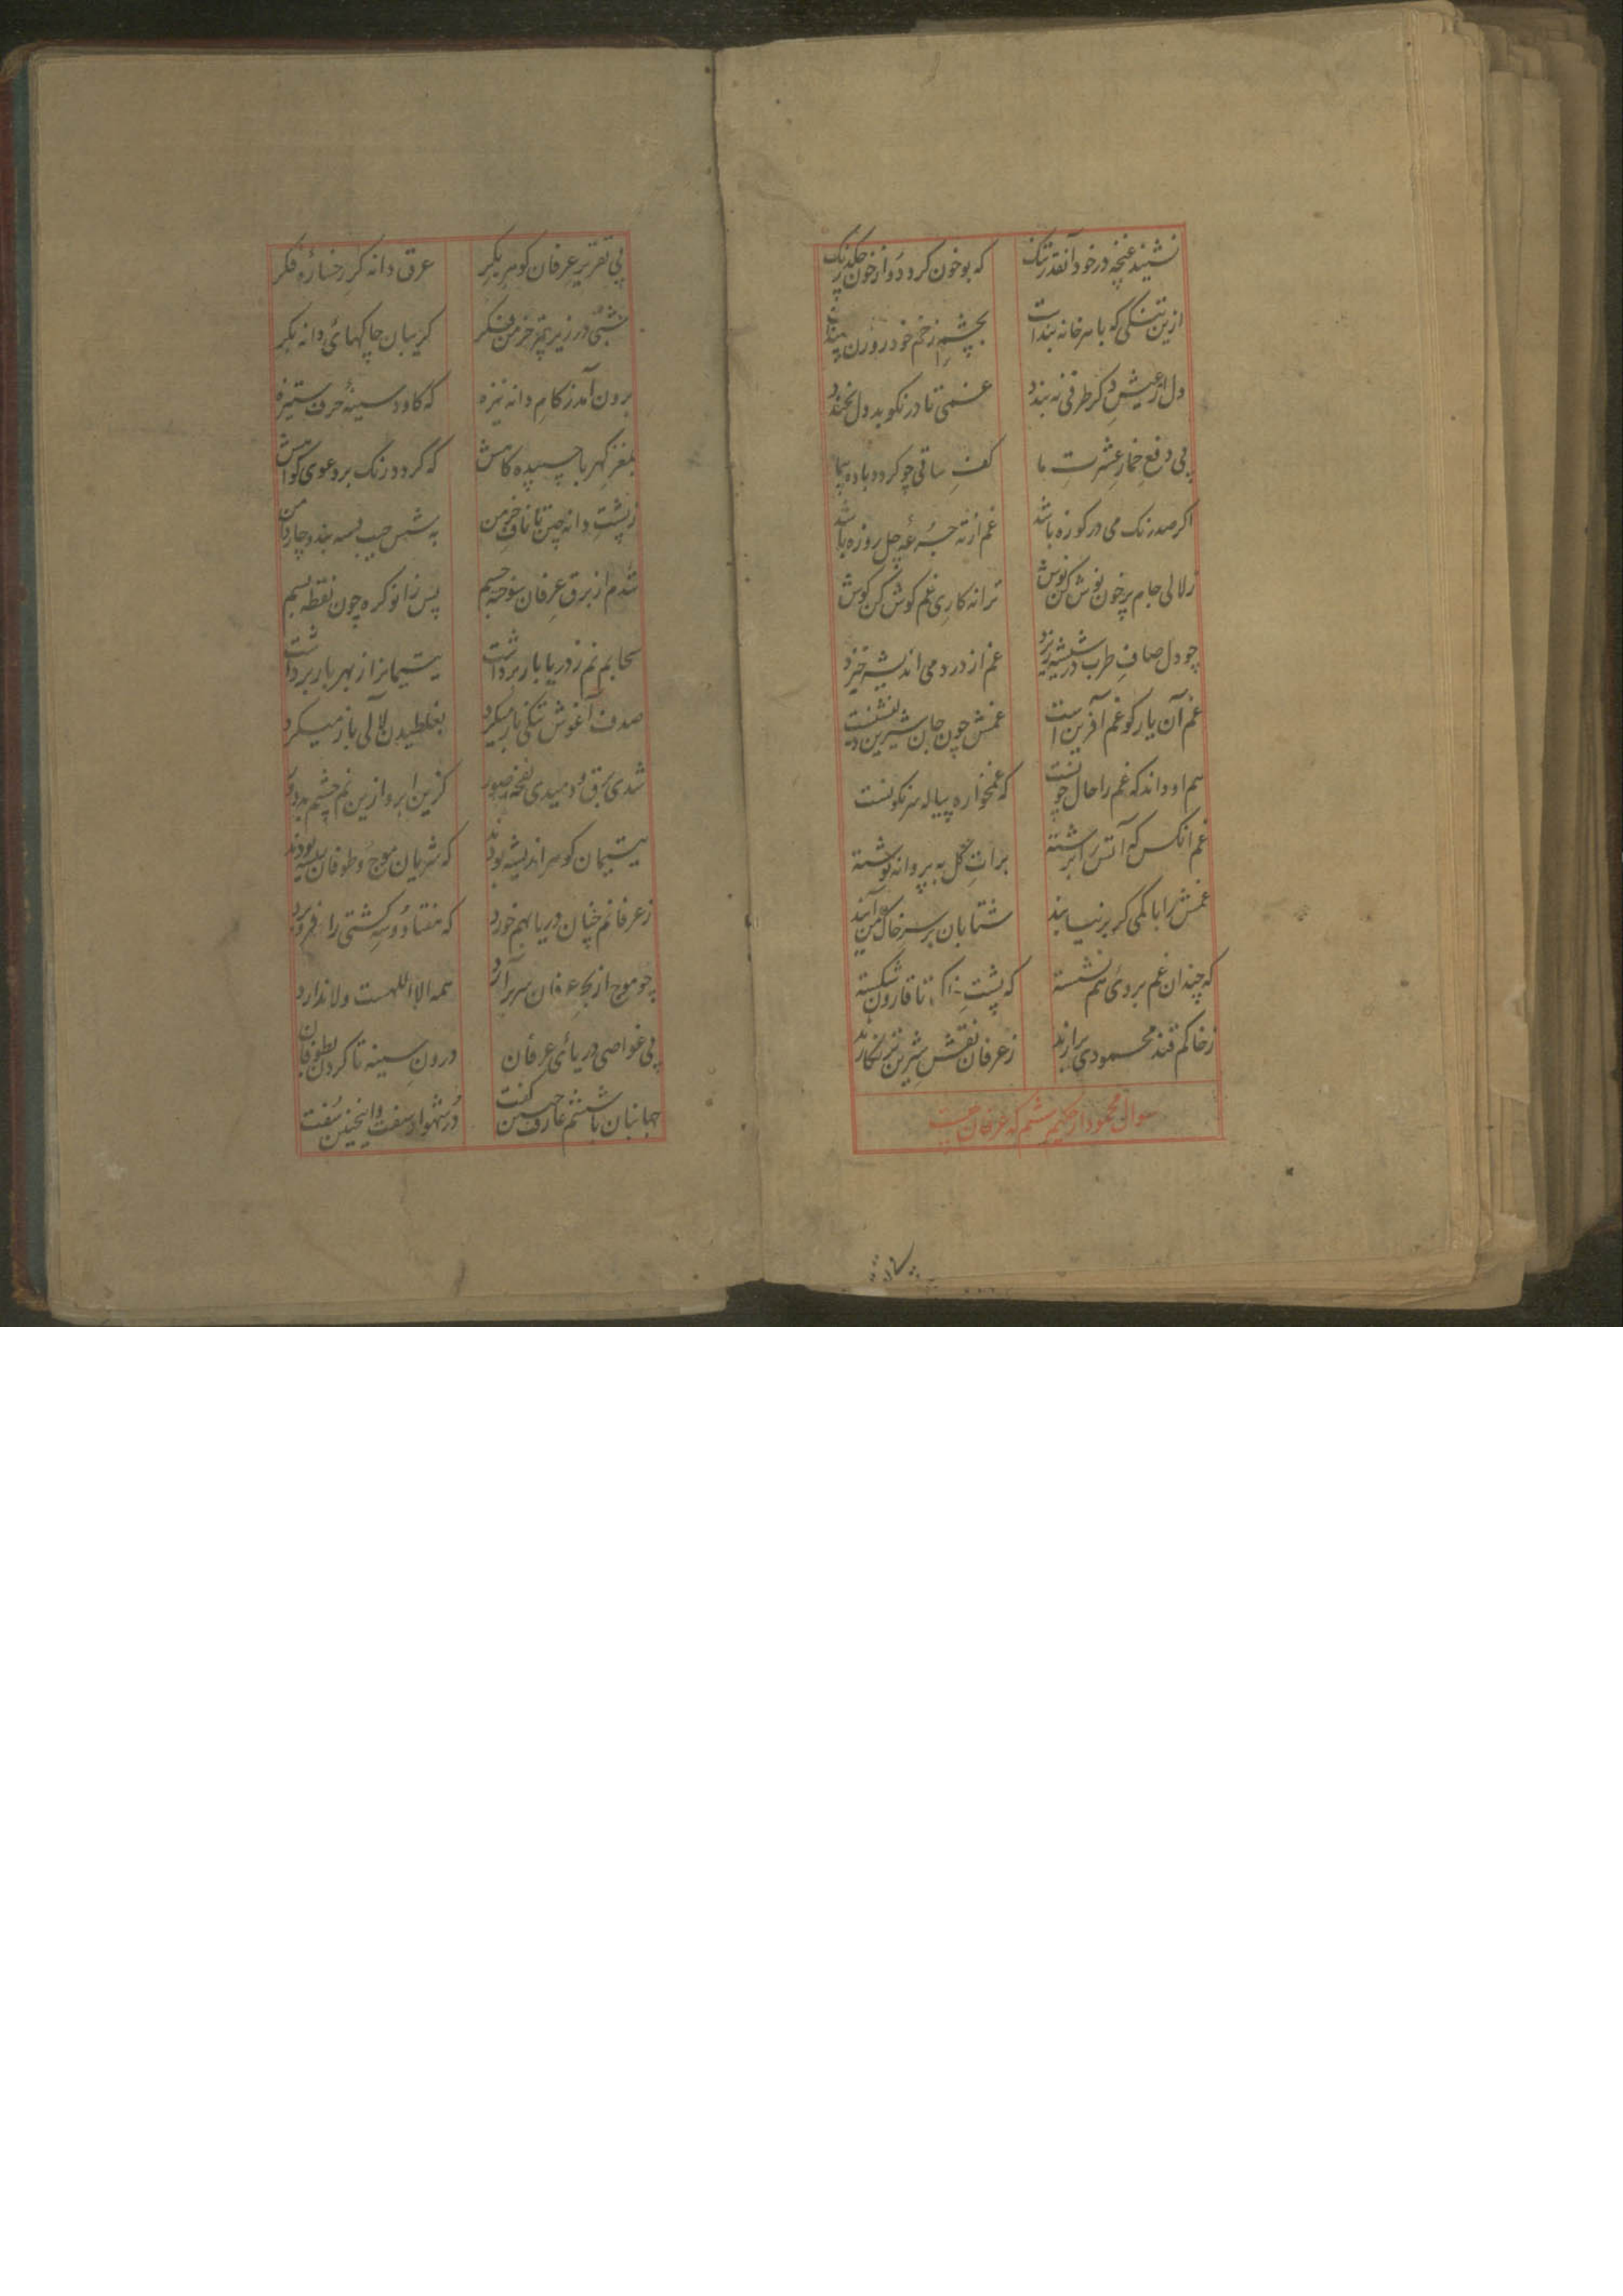 نشیند غنچه در خود آنقدر تنک که بو خون کردد و از خون چکد رنک
ازین تنکی که با هر خانه بنداست بچشم زخم خود روزن
دل از عیش دکر طرفی نه بندد غمی تا در نکوبد دل نخندد
پی دفع خمار عشرت ما کف ساقی چو کردد باده پیما
اکر صد رنک می در کوزه باشد غم از ته جرعه چل روزه باشد
زلالی جام پر خون نوش کن نوش ترانه کاری غم کوش کن کوش
چو دل صاف طرب در شیشه ریزد غم از درد می اندیشه خیزد
غم آن یار کو غم آفرین است غمش چون جان شیرین
هم او داند که غم را حال چونست که غمخواره پیاله سرنکونست
غم انکس که آتش را برشته برات کل به پروانه نوشته
غمش را با کمی کر بر نیابند شتابان بر سر خاک من آیند
که چندان غم بروی هم نشسته که پشت تا قارون شکسته
ز خاکم قند محمودی برارند ز عرفان نقش شیرین تر نکارند
سوال محمود از حکیم ششم که عرفان چیست
پی تقریر عرفان کوهر بکر عرق دانه کر رخساره فکر
شبی در زیر خرمن فکر کریبان چاکهای دانه بکر
برون آمد ز کام دانه نیزه که کاود سینه حرف ستیزه
بمغز کهربا چسپیده کاهش که کردد رنک بر دعوی کواهش
ز پشت دانه چین تا ناف خرمن به شش جیب بسه بند و چار دامن
شدم از برق عرفان سوخته جسم پس زانو کره چون نقطه بسم
سحابم نم ز دریا بار برداشت یتیمانرا ز بهر بار برداشت
صدف آغوش تنکی باز میکرد بغلطیدن لآلی ناز میکرد
شدی برق و دمیدی نفخه صور کزین ابر و ازین نم چشم بد دور
یتیمان کوهر اندیشه بودند که شریان موج و طوفان بودند
ز عرفانم چنان دریا بهم خورد که هفتاد و سه کشتی را فرو برد
چو موج از بحر عرفان سر برآرد همه الا اللهست و لا ندارد
پی غواصی دریای عرفان درون سینه تا کردن بطوفان
جهانبان با ششم عارف چنین کفت در شهوار سفت و اینچنین سفت